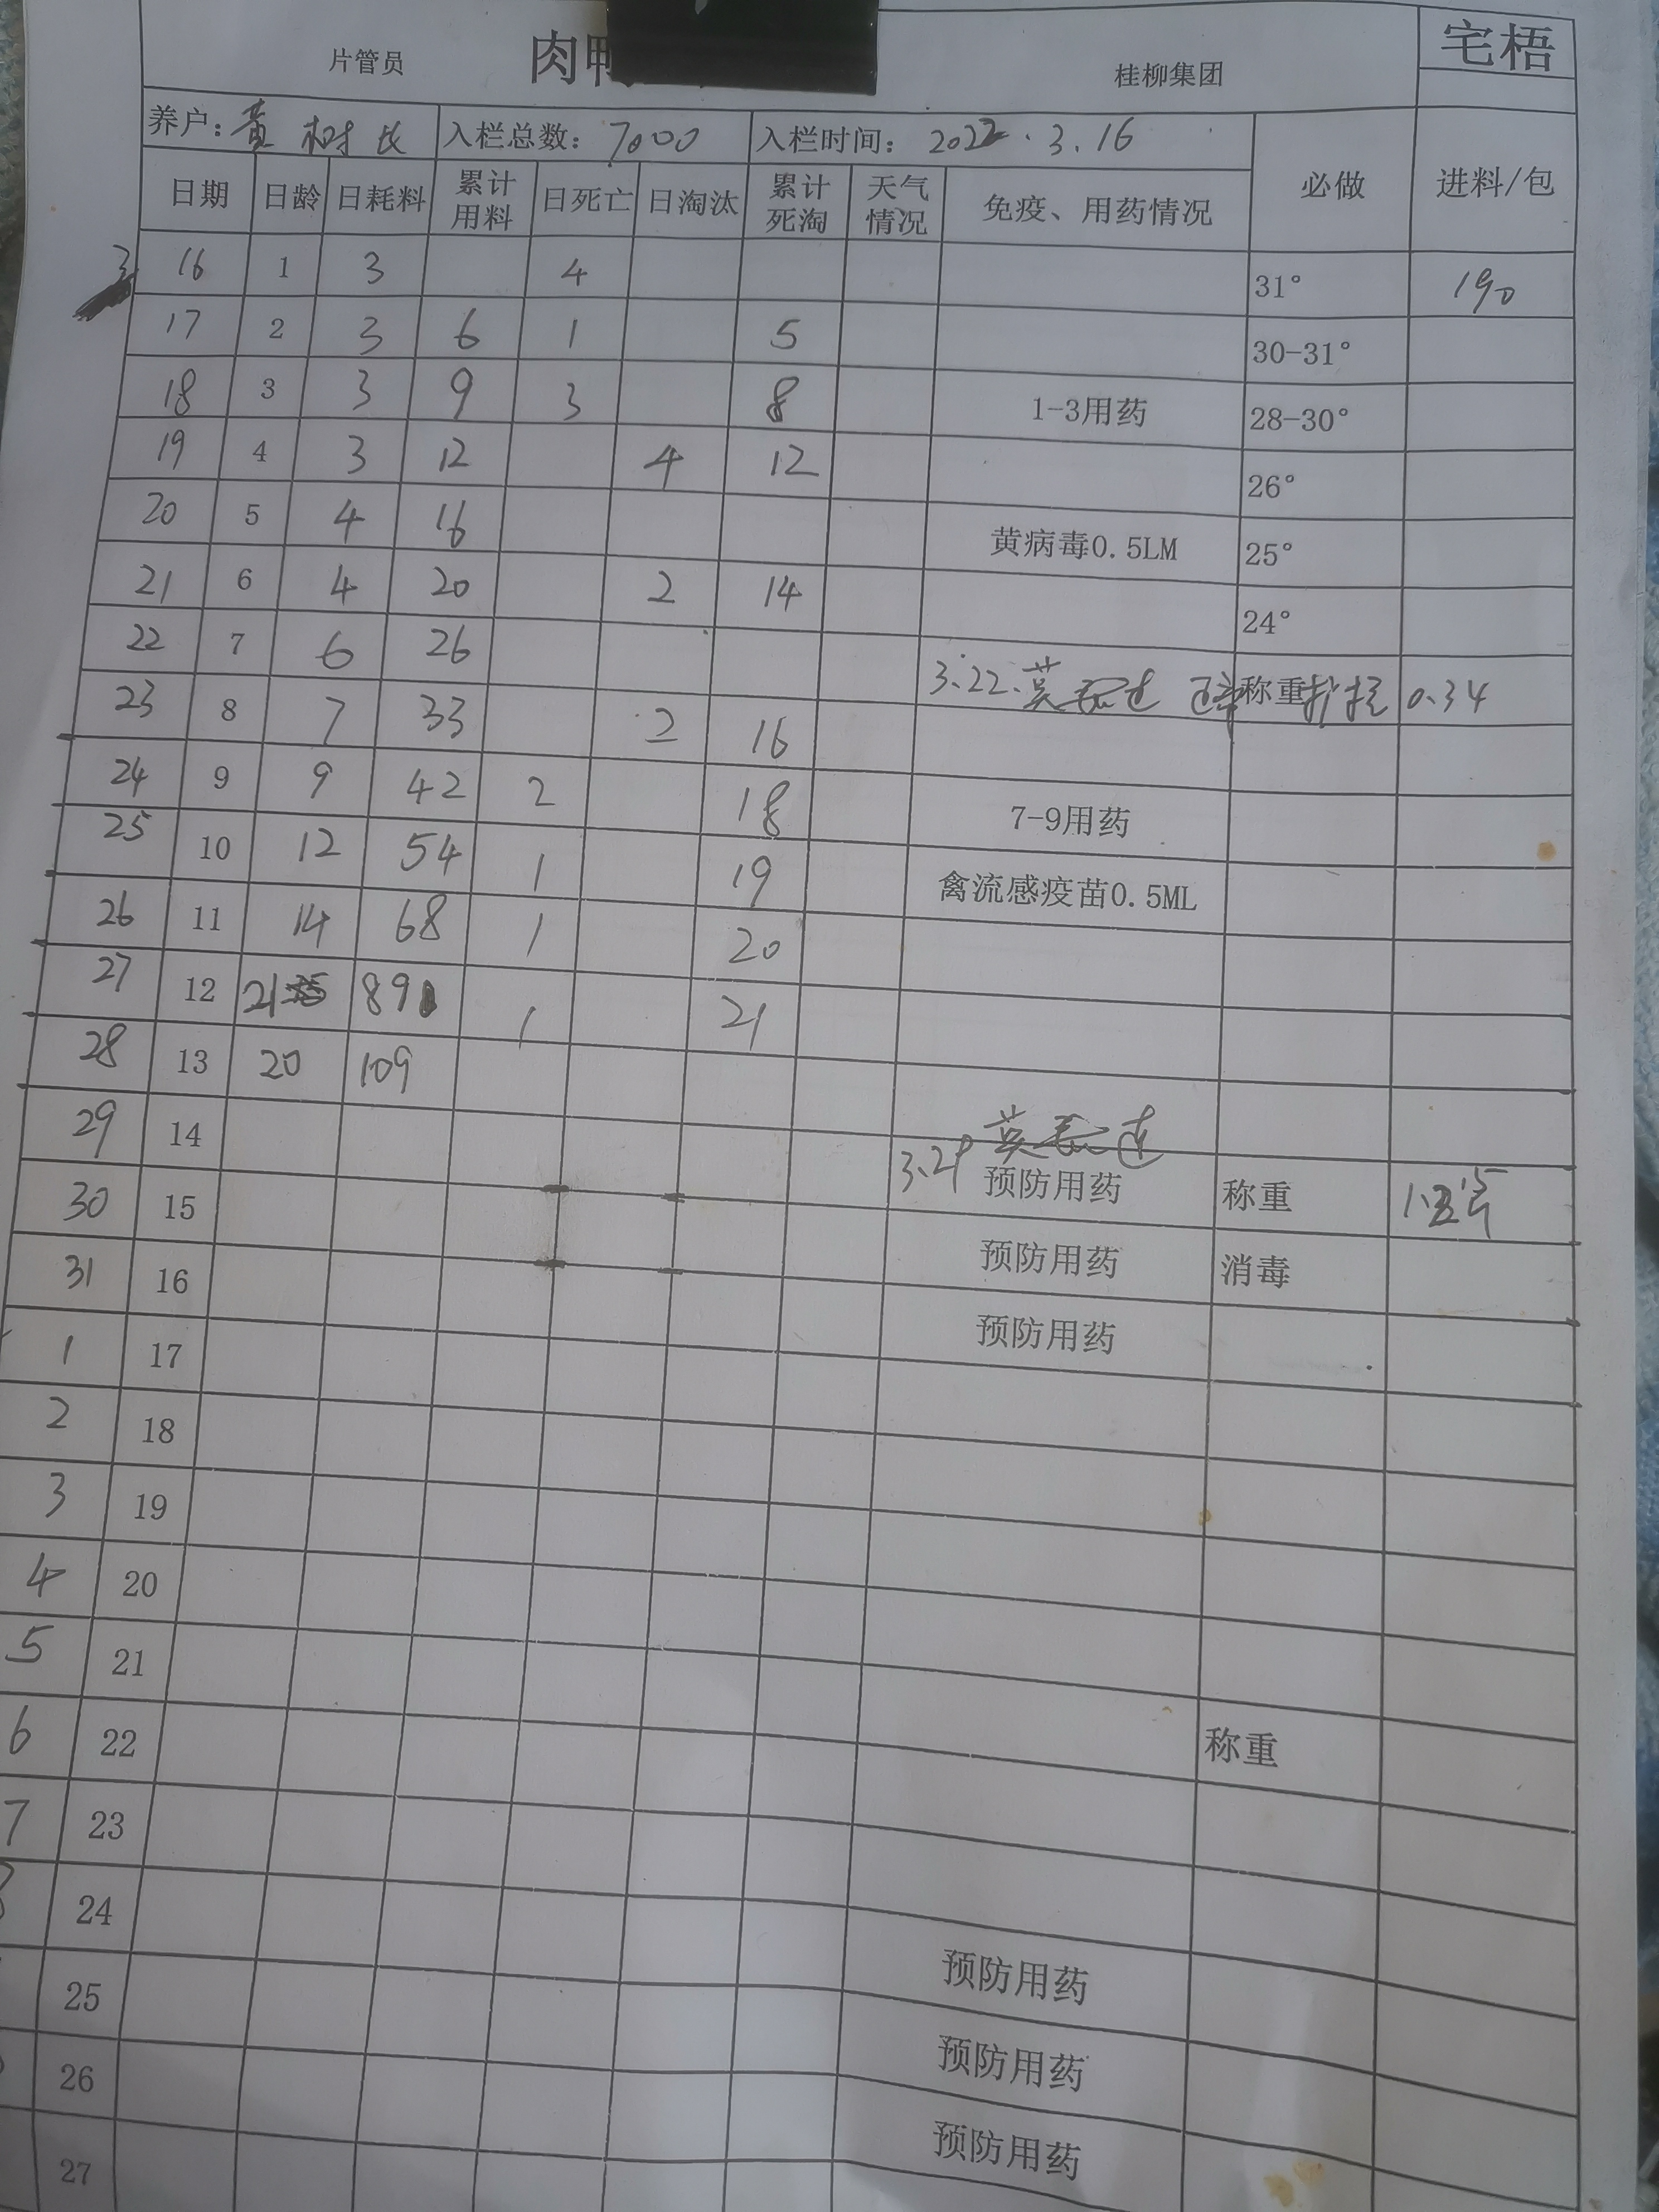 片管员 肉鸭 桂柳集团 宅梧
养户：黄树 入栏总数：7000 入栏时间：2022.3.16 必做 进料/包
日期 日龄 日耗料 累计用料 日死亡 日淘汰 累计死淘 天气情况 免疫、用药情况
3 16 1 3 4 31° 190
17 2 3 6 1 5 30-31°
18 3 3 9 3 8 1-3用药 28-30°
19 4 3 12 4 12 26°
20 5 4 16 黄病毒0.5LM 25°
21 6 4 20 2 14 24°
22 7 6 26 3.22. 称重 0.34
23 8 7 33 2 16
24 9 9 42 2 18 7-9用药
25 10 12 54 1 19 禽流感疫苗0.5ML
26 11 14 68 1 20
27 12 21 89 1 21
28 13 20 109
29 14 3.29 预防用药 称重
30 15 预防用药 消毒
31 16 预防用药
1 17
2 18
3 19
4 20
5 21
6 22 称重
7 23
24
25 预防用药
26 预防用药
27 预防用药